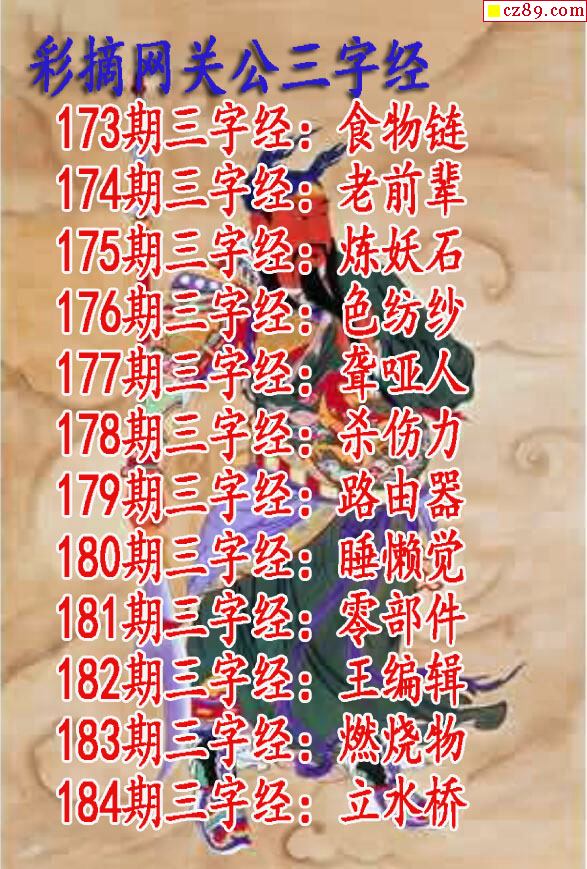 cz89.com
彩摘网关公三字经
173期三字经：食物链
174期三字经：老前辈
175期三字经：炼妖石
176期三字经：色纺纱
177期三字经：聋哑人
178期三字经：杀伤力
179期三字经：路由器
180期三字经：睡懒觉
181期三字经：零部件
182期三字经：王编辑
183期三字经：燃烧物
184期三字经：立水桥